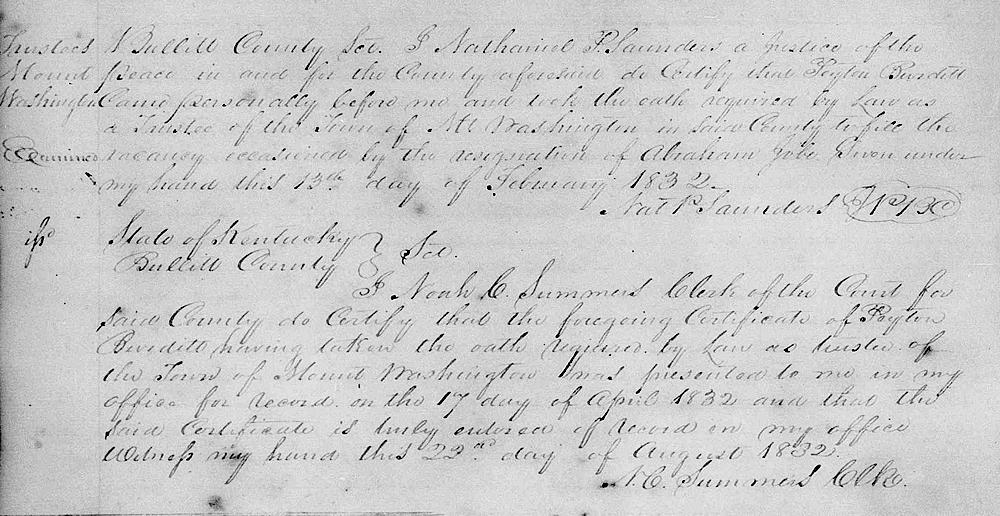 Trustees } Bullitt County Sct. I Nathaniel P. Saunders a Justice of the
Mount peace in and for the County aforesaid do Certify that Peyton Burditt
Washington Came personally before me and took the oath required by Law as
a Trustee of the Town of Mt Washington in said County to fill the
Examined vacancy occasioned by the resignation of Abraham Given under
my hand this 13th day of February 1832
Nat P Saunders
State of Kentucky } Sct.
Bullitt County
I Noah C. Summers Clerk of the Court for
said County do Certify that the foregoing Certificate of Peyton
Burditt having taken the oath required by Law as trustee of
the Town of Mount Washington was presented to me in my
office for record on the 17 day of April 1832 and that the
said Certificate is truly entered of record in my office
Witness my hand this 22nd day of August 1832.
N. C. Summers Clk.